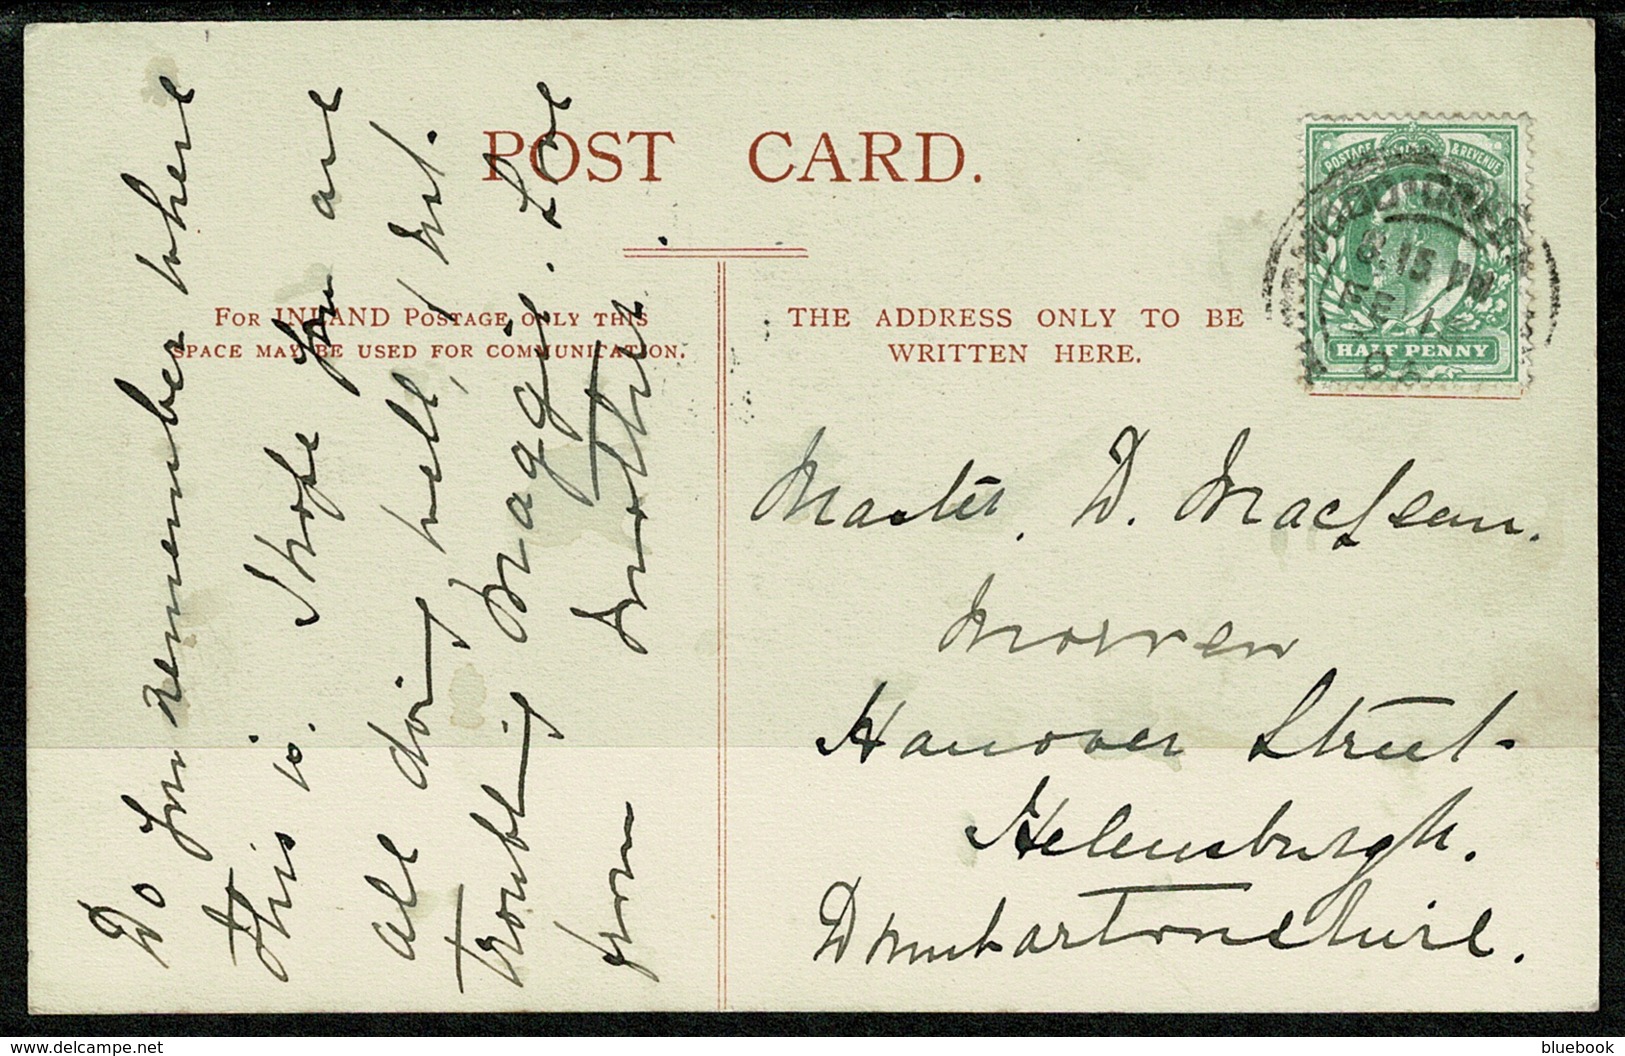 POST CARD.
FOR INLAND POSTAGE ONLY THIS
SPACE MAY BE USED FOR COMMUNICATION.
THE ADDRESS ONLY TO BE
WRITTEN HERE.
POSTAGE & REVENUE
HALF PENNY
WOOD GREEN
8.15 PM
FE 12
Do you remember where
this is. I hope you are
all doing well, & not
troubling Maggie. Love
from Mother.
Master. D. MacLean.
Morven
Hanover Street
Helensburgh.
Dumbartonshire.
delcampe.net
bluebook